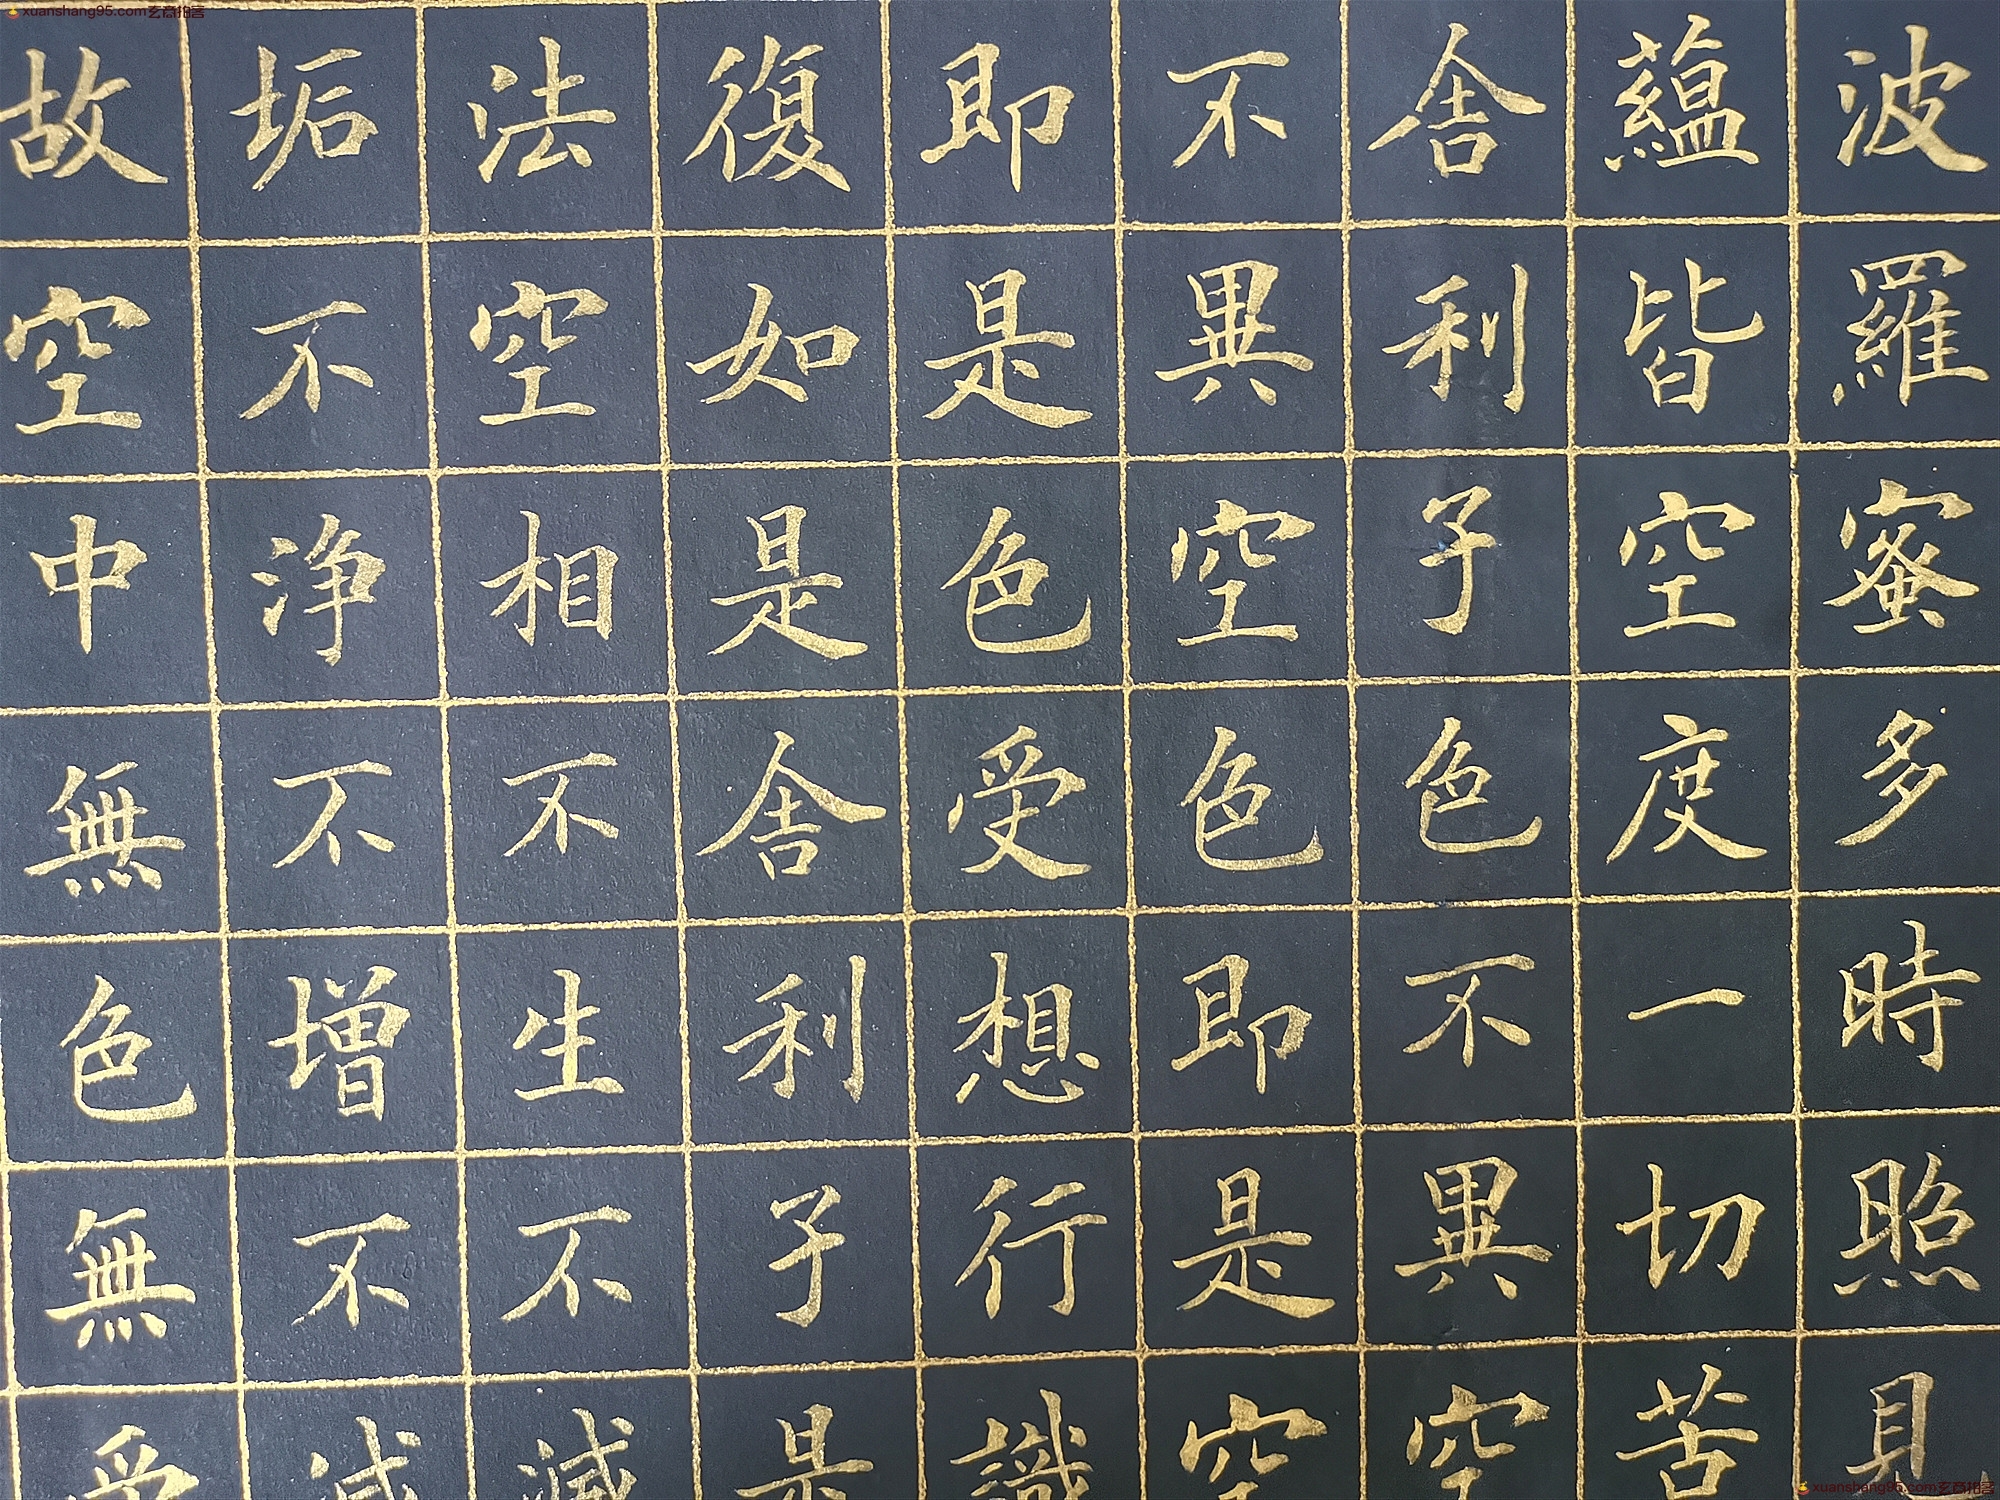 波羅蜜多時照見
蘊皆空度一切苦
舍利子色不異空
不異空色即是空
即是色受想行識
復如是舍利子是
法空相不生不滅
垢不淨不增不減
故空中無色無受
xuanshang95.com玄裔拍客
xuanshang95.com玄裔拍客